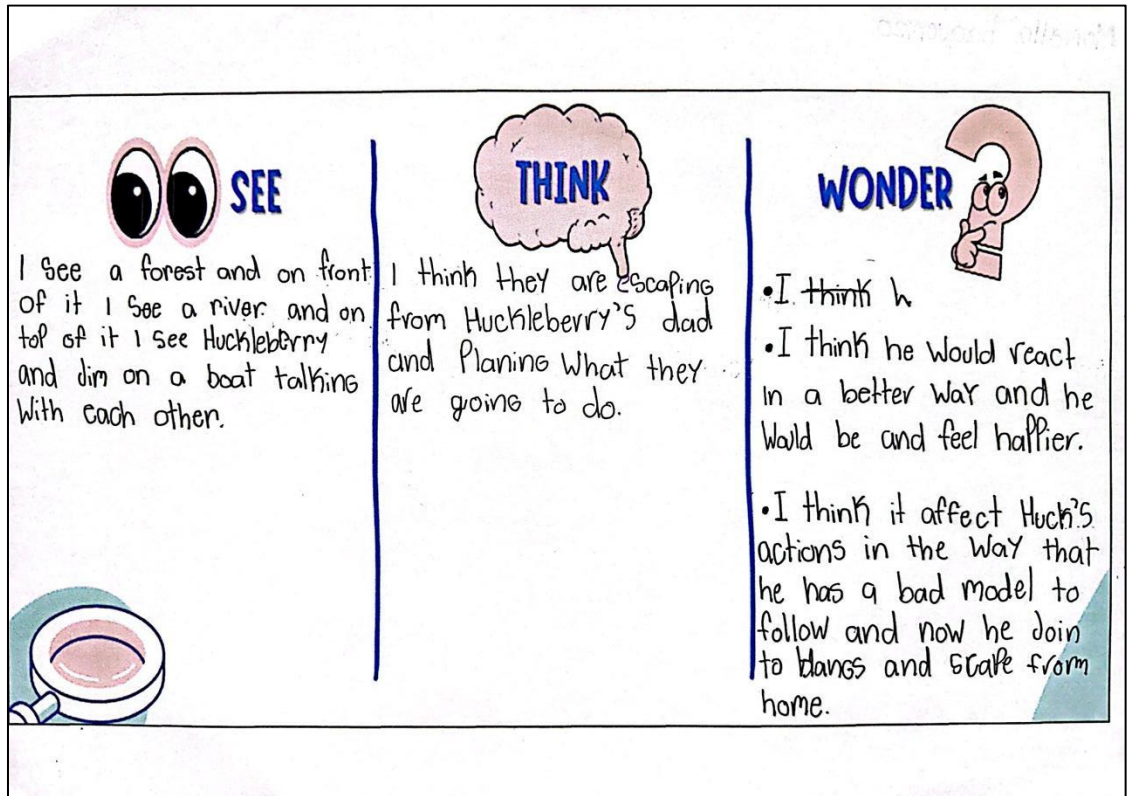 SEE
I see a forest and on front
of it I see a river and on
top of it I see Huckleberry
and Jim on a boat talking
with each other.
THINK
I think they are escaping
from Huckleberry's dad
and Planing What they
are going to do.
WONDER
•I think h
•I think he would react
in a better way and he
Would be and feel happier.
•I think it affect Huck's
actions in the way that
he has a bad model to
follow and now he Join
to and scape from
home.